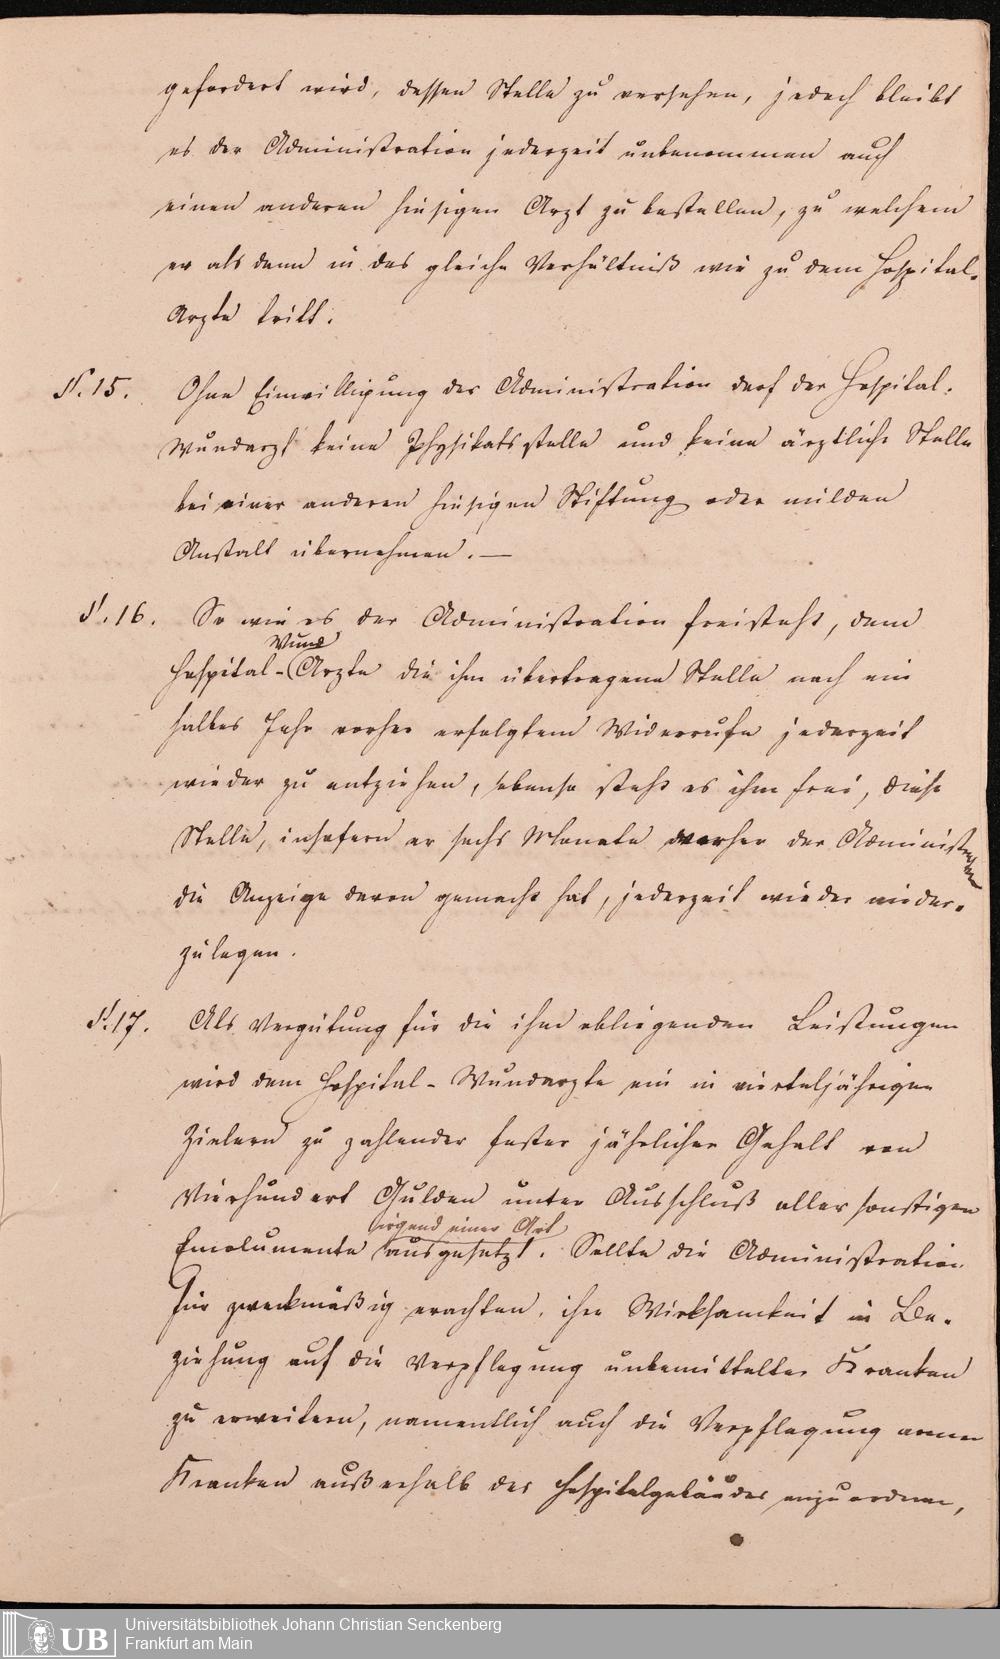 gefordert wird, dessen Stelle zu versehen, jedoch bleibt
es der Administration jederzeit unbenommen auch
einen anderen hiesigen Arzt zu bestellen, zu welchem
er als dann in das gleiche Verhältniß wie zu dem Hospital-
Arzte tritt.
§. 15. Ohne Einwilligung der Administration darf der Hospital-
Wundarzt keine Physikatsstelle und keine ärztliche Stelle
bei einer anderen hiesigen Stiftung oder milden
Anstalt übernehmen. —
§. 16. So wie es der Administration freisteht, dem
Wund
Hospital-Arzte die ihm übertragene Stelle nach ein
halbes Jahr vorher erfolgtem Widerrufe jederzeit
wieder zu entziehen, ebenso steht es ihm frei, diese
Stelle, insofern er sechs Monate vorher der Administration
die Anzeige davon gemacht hat, jederzeit wieder nieder-
zulegen.
§. 17. Als Vergütung für die ihm obliegenden Leistungen
wird dem Hospital-Wundarzte ein in vierteljährigen
Zielern zu zahlender fester jährlicher Gehalt von
Vierhundert Gulden unter Ausschluß aller sonstigen
irgend einer Art
Emolumente ausgesetzt. Sollte die Administration
für zweckmäßig erachten, ihre Wirksamkeit in Be-
ziehung auf die Verpflegung unbemittelter Kranken
zu erweitern, namentlich auch die Verpflegung armer
Kranken außerhalb des Hospitalgebäudes anzuordnen,
UB
Universitätsbibliothek Johann Christian Senckenberg
Frankfurt am Main